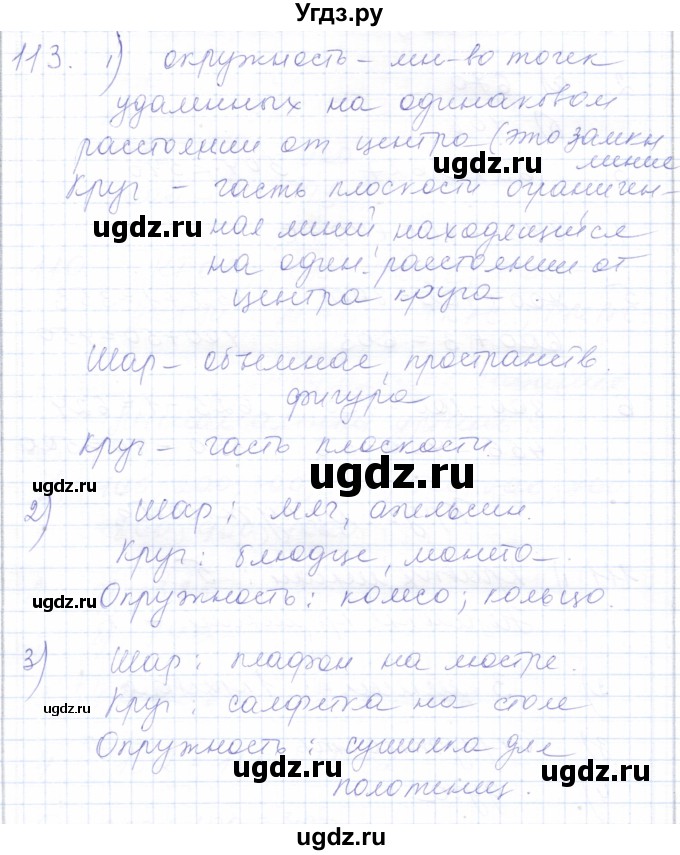 Угдз.ру
113. 1) окружность – мн-во точек
удаленных на одинаковом
расстоянии от центра (это замкн
линие
Круг – часть плоскости ограничен-
ugdz.ru
ugdz.ru
ная линией, находящийся
на один. расстоянии от
центра круга.
Шар – объемная, пространств.
фигура
Круг – часть плоскости.
ugdz.ru
ugdz.ru
2) Шар: мяч, апельсин.
Круг: блюдце, монета
Окружность: колесо; кольцо.
ugdz.ru
3) Шар: плафон на люстре.
Круг: салфетка на столе
ugdz.ru
Окружность: сушилка для
полотенец.
ugdz.ru
ugdz.ru
ugdz.ru